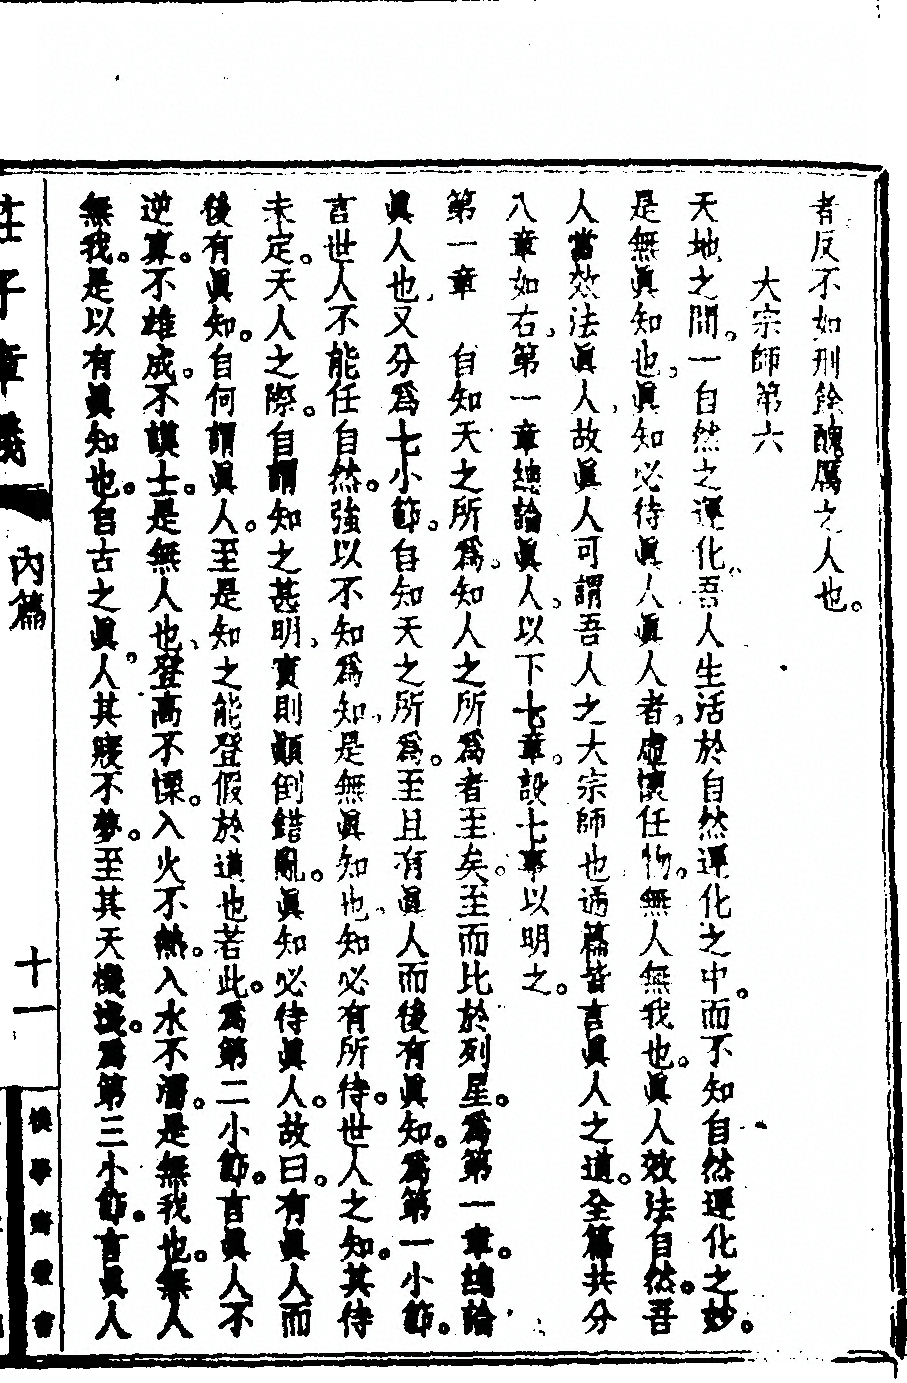 者反不如刑餘醜厲之人也。
大宗師第六
天地之間。一自然之運化。吾人生活於自然運化之中。而不知自然運化之妙。
是無眞知也。眞知必待眞人。眞人者。虛懷任物。無人無我也。眞人效法自然。吾
人當效法眞人。故眞人可謂吾人之大宗師也。通篇皆言眞人之道。全篇共分
八章如右。第一章總論眞人。以下七章。設七事以明之。
第一章　自知天之所爲。知人之所爲者至矣。至而比於列星。爲第一章。總論
眞人也。又分爲七小節。自知天之所爲。至且有眞人而後有眞知。爲第一小節。
言世人不能任自然。強以不知爲知。是無眞知也。知必有所待。世人之知。其待
未定。天人之際。自謂知之甚明。實則顚倒錯亂。眞知必待眞人。故曰。有眞人而
後有眞知。自何謂眞人。至是知之能登假於道也若此。爲第二小節。言眞人不
逆寡。不雄成。不謨士。是無人也。登高不慄。入火不熱。入水不濡。是無我也。無人
無我。是以有眞知也。自古之眞人。其寢不夢。至其天機淺。爲第三小節。言眞人
莊子章義
內篇
十一
樸學齋叢書